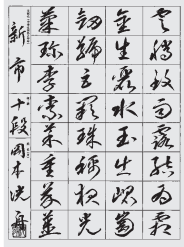 雲騰致雨露結為霜
金生麗水玉出崑崗
劍號巨闕珠稱夜光
菓珍李柰菜重芥薑
新市 十段 岡本洸舟